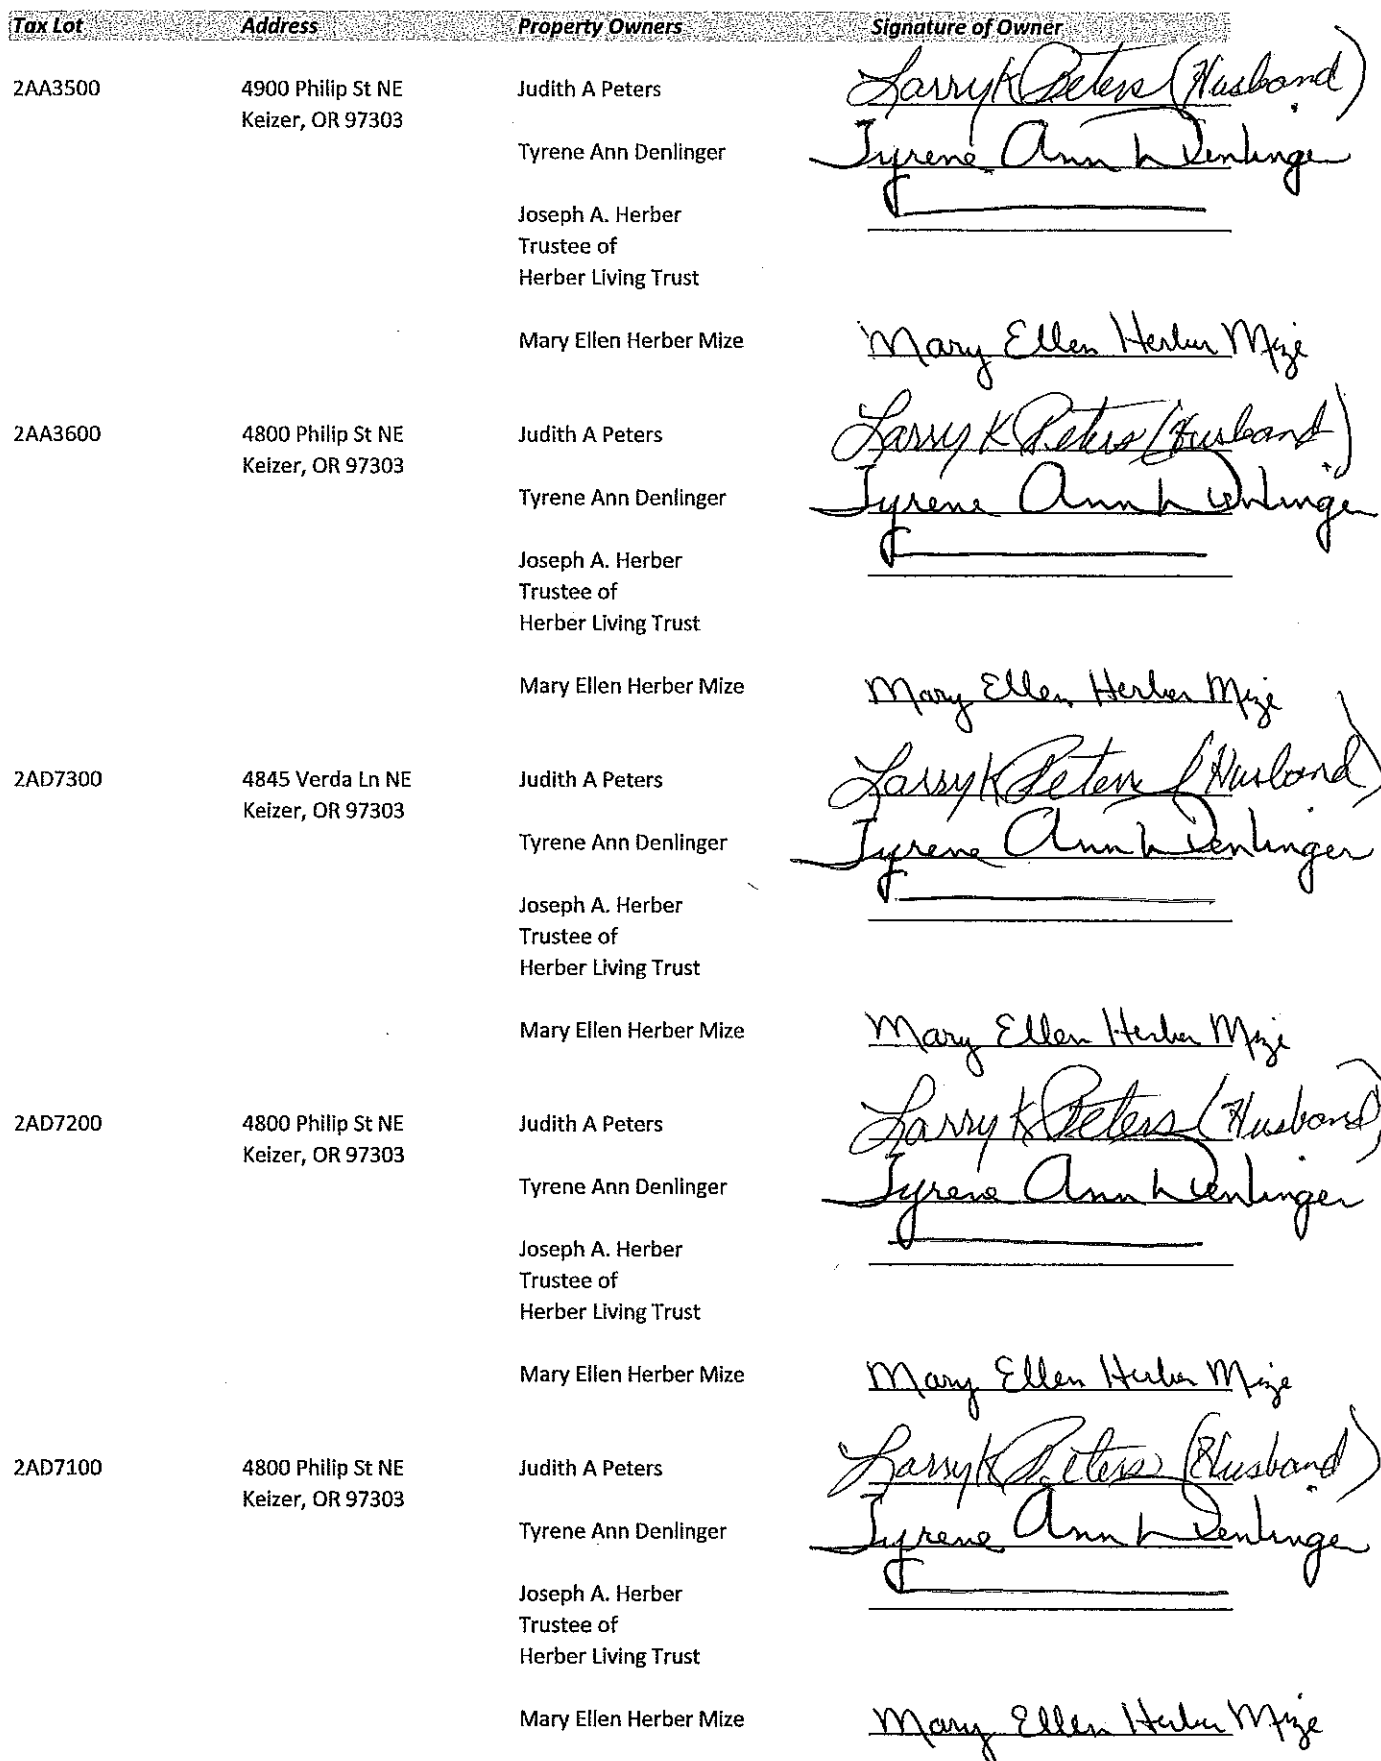 Tax Lot Address Property Owners Signature of Owner
2AA3500 4900 Philip St NE Judith A Peters Larry K Peters (Husband)
Keizer, OR 97303
Tyrene Ann Denlinger Tyrene Ann Denlinger
Joseph A. Herber
Trustee of
Herber Living Trust
Mary Ellen Herber Mize Mary Ellen Herber Mize
2AA3600 4800 Philip St NE Judith A Peters Larry K Peters (Husband)
Keizer, OR 97303
Tyrene Ann Denlinger Tyrene Ann Denlinger
Joseph A. Herber
Trustee of
Herber Living Trust
Mary Ellen Herber Mize Mary Ellen Herber Mize
2AD7300 4845 Verda Ln NE Judith A Peters Larry K Peters (Husband)
Keizer, OR 97303
Tyrene Ann Denlinger Tyrene Ann Denlinger
Joseph A. Herber
Trustee of
Herber Living Trust
Mary Ellen Herber Mize Mary Ellen Herber Mize
2AD7200 4800 Philip St NE Judith A Peters Larry K Peters (Husband)
Keizer, OR 97303
Tyrene Ann Denlinger Tyrene Ann Denlinger
Joseph A. Herber
Trustee of
Herber Living Trust
Mary Ellen Herber Mize Mary Ellen Herber Mize
2AD7100 4800 Philip St NE Judith A Peters Larry K Peters (Husband)
Keizer, OR 97303
Tyrene Ann Denlinger Tyrene Ann Denlinger
Joseph A. Herber
Trustee of
Herber Living Trust
Mary Ellen Herber Mize Mary Ellen Herber Mize